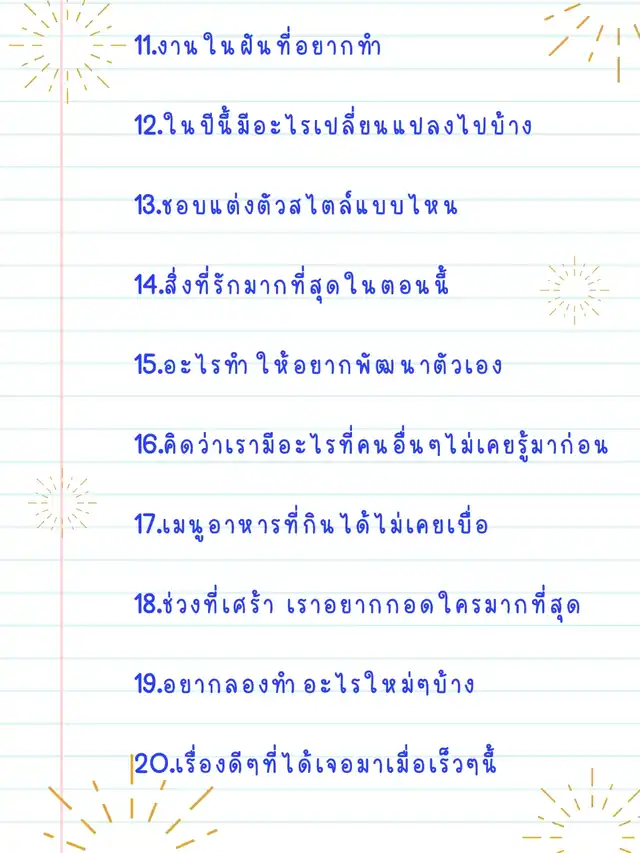 11.งานในฝันที่อยากทำ
12.ในปีนี้มีอะไรเปลี่ยนแปลงไปบ้าง
13.ชอบแต่งตัวสไตล์แบบไหน
14.สิ่งที่รักมากที่สุดในตอนนี้
15.อะไรทำให้อยากพัฒนาตัวเอง
16.คิดว่าเรามีอะไรที่คนอื่นๆไม่เคยรู้มาก่อน
17.เมนูอาหารที่กินได้ไม่เคยเบื่อ
18.ช่วงที่เศร้า เราอยากกอดใครมากที่สุด
19.อยากลองทำอะไรใหม่ๆบ้าง
20.เรื่องดีๆที่ได้เจอมาเมื่อเร็วๆนี้